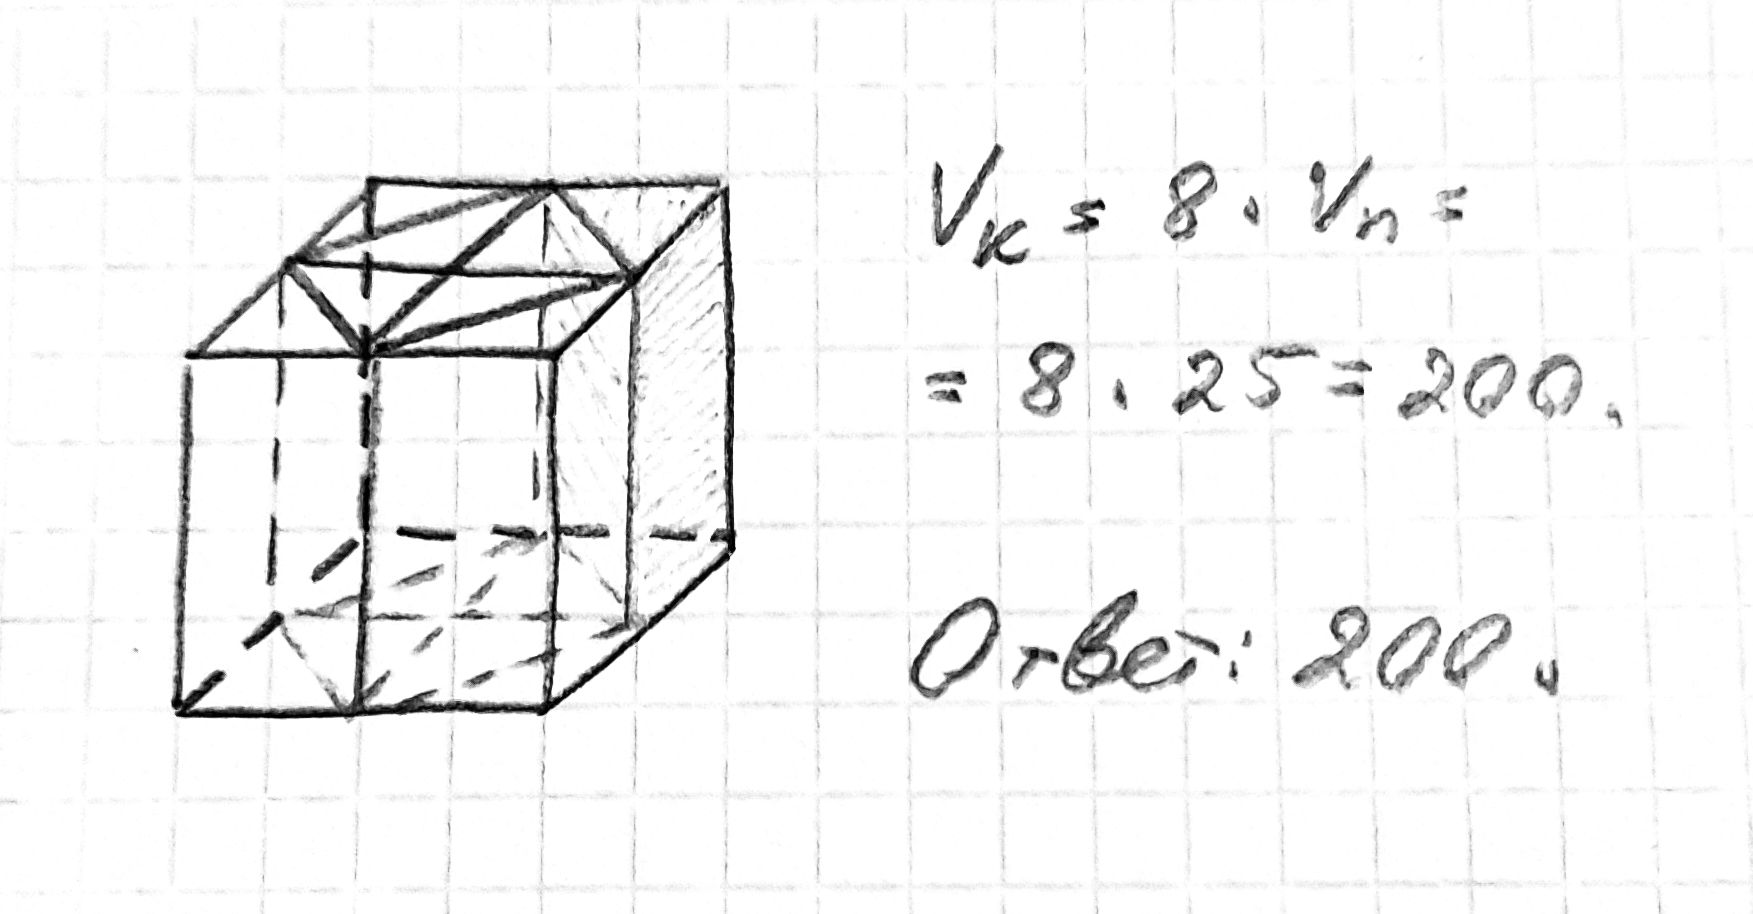 Vк = 8 · Vп =
= 8 · 25 = 200.
Ответ: 200.